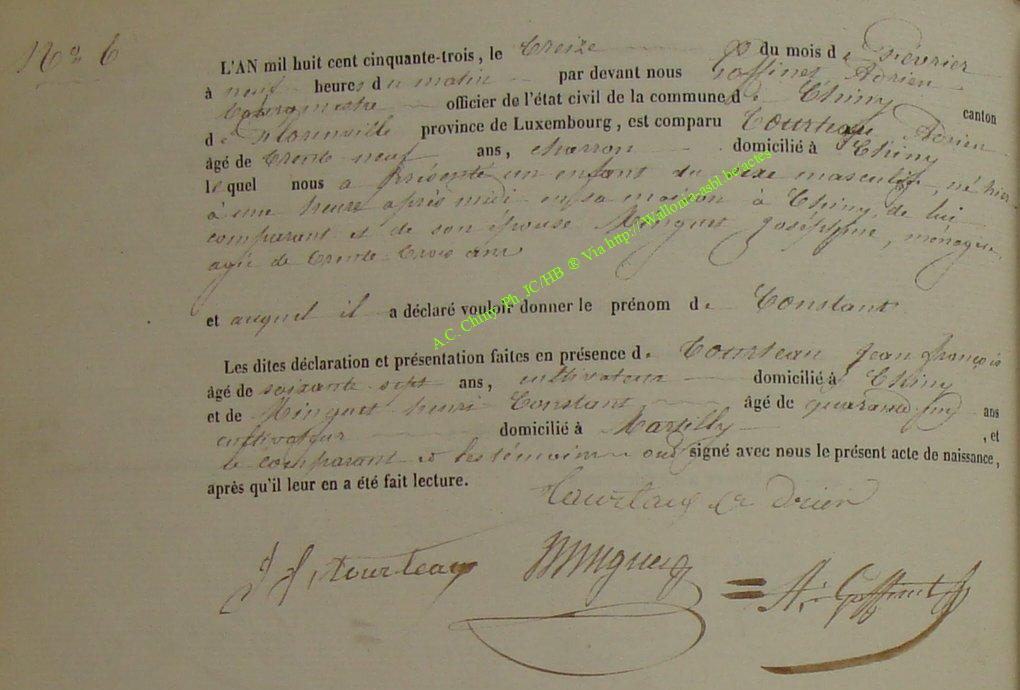 No 6
L'AN mil huit cent cinquante-trois, le treize du mois de Février
à neuf heures du matin par devant nous Goffinet, Adrien
bourgmestre officier de l'état civil de la commune de Chiny canton
de Florenville province de Luxembourg, est comparu Tourteau Adrien
âgé de trente neuf ans, charron domicilié à Chiny
lequel nous a présenté un enfant du sexe masculin, né hier
à une heure après midi en sa maison à Chiny, de lui
comparant et de son épouse Minguet Joséphine, ménagère
agée de trente trois ans
et auquel il a déclaré vouloir donner le prénom de Constant
Les dites déclaration et présentation faites en présence de Tourteau Jean françois
âgé de soixante sept ans, cultivateur domicilié à Chiny
et de Minguet henri Constant âgé de quarante ans
cultivateur domicilié à Martilly , et
le comparant et les témoins ont signé avec nous le présent acte de naissance,
après qu'il leur en a été fait lecture.
Tourtaux Adrien
J. f. tourteau Minguet A. Goffinet
A.C. Chiny Ph. JC/HB ® Via http://Wallonia-asbl.be/actes